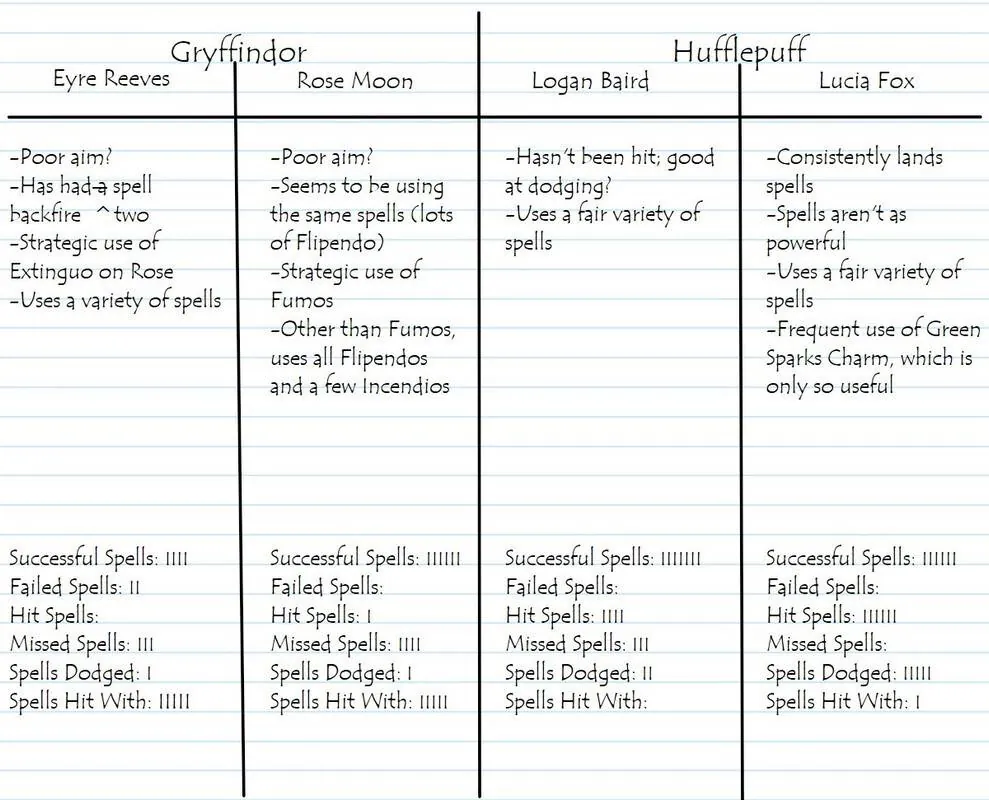 Gryffindor
Eyre Reeves
-Poor aim?
-Has had a spell
backfire ^two
-Strategic use of
Extinguo on Rose
-Uses a variety of spells
Successful Spells: IIII
Failed Spells: II
Hit Spells:
Missed Spells: III
Spells Dodged: I
Spells Hit With: IIIII
Rose Moon
-Poor aim?
-Seems to be using
the same spells (lots
of Flipendo)
-Strategic use of
Fumos
-Other than Fumos,
uses all Flipendos
and a few Incendios
Successful Spells: IIIIII
Failed Spells:
Hit Spells: I
Missed Spells: IIII
Spells Dodged: I
Spells Hit With: IIIII
Hufflepuff
Logan Baird
-Hasn't been hit; good
at dodging?
-Uses a fair variety of
spells
Successful Spells: IIIIIII
Failed Spells:
Hit Spells: IIII
Missed Spells: III
Spells Dodged: II
Spells Hit With:
Lucia Fox
-Consistently lands
spells
-Spells aren't as
powerful
-Uses a fair variety of
spells
-Frequent use of Green
Sparks Charm, which is
only so useful
Successful Spells: IIIIII
Failed Spells:
Hit Spells: IIIIII
Missed Spells:
Spells Dodged: IIIII
Spells Hit With: I